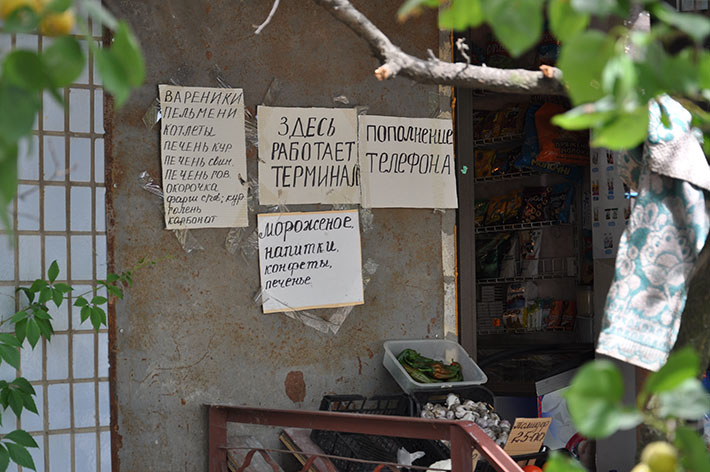 ВАРЕНИКИ
ПЕЛЬМЕНИ
КОТЛЕТЫ
ПЕЧЕНЬ КУР
ПЕЧЕНЬ СВИН.
ПЕЧЕНЬ ГОВ.
ОКОРОЧКА
фарш: св; кур
голень
карбонат
ЗДЕСЬ
РАБОТАЕТ
ТЕРМИНАЛ
ПОПОЛНЕНИЕ
ТЕЛЕФОНА
МОРОЖЕНОЕ,
НАПИТКИ,
КОНФЕТЫ,
ПЕЧЕНЬЕ